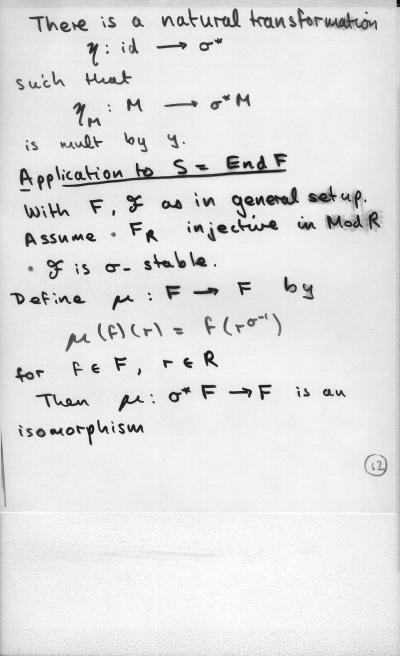 There is a natural transformation
η : id → σ*
such that
η_M : M → σ* M
is mult by y.
Application to S = End F
With F, ℱ as in general setup.
Assume · F_R injective in Mod R
· ℱ is σ- stable.
Define μ : F → F by
μ(f)(r) = f(r^σ⁻¹)
for f ∈ F, r ∈ R
Then μ: σ* F → F is an
isomorphism
12